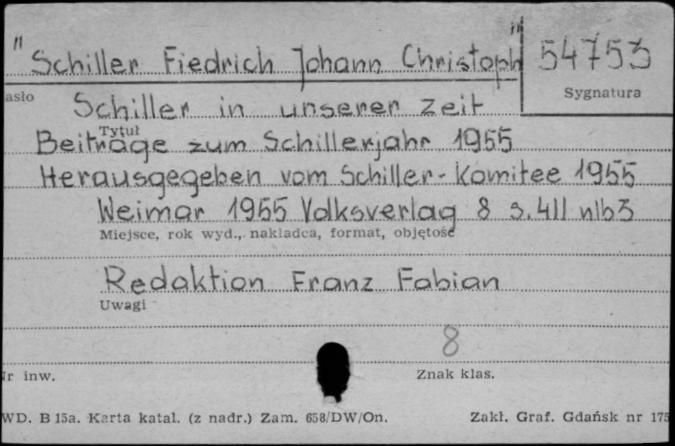 "Schiller Fiedrich Johann Christoph" 54753
asło Sygnatura
Schiller in unserer Zeit
Tytuł
Beiträge zum Schillerjahr 1955
Herausgegeben vom Schiller-Komitee 1955
Weimar 1955 Volksverlag 8 s. 411 nlb3
Miejsce, rok wyd., nakładca, format, objętość
Redaktion Franz Fabian
Uwagi
8
Nr inw. Znak klas.
WD. B 15a. Karta katal. (z nadr.) Zam. 658/DW/On. Zakł. Graf. Gdańsk nr 175